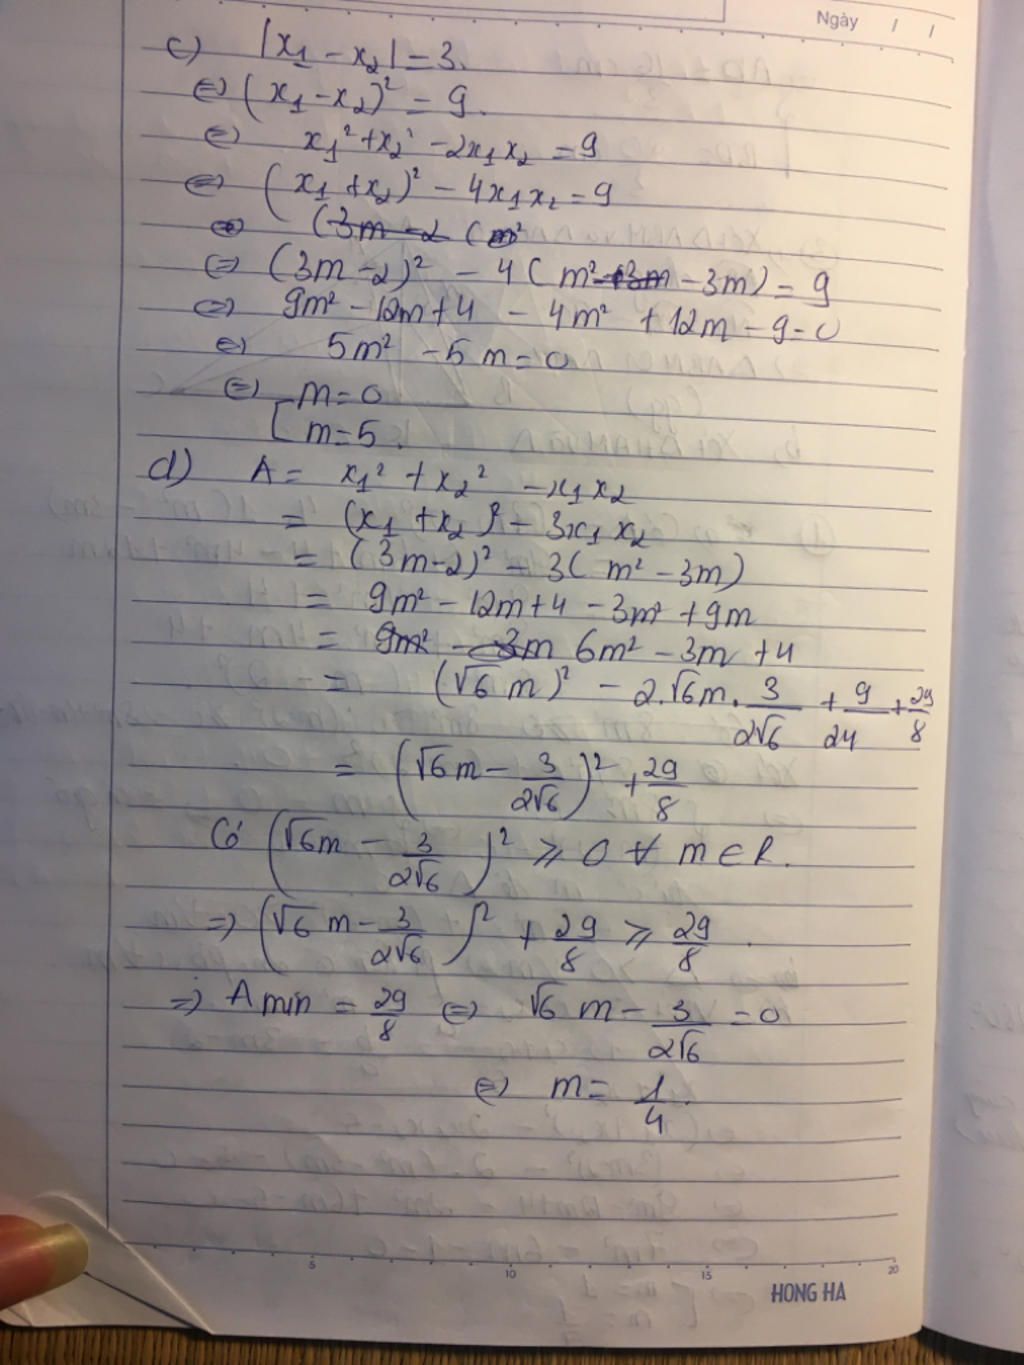 Ngày / /
c) |x₁ - x₂| = 3.
⇔ (x₁ - x₂)² = 9.
⇔ x₁² + x₂² - 2x₁x₂ = 9
⇔ (x₁ + x₂)² - 4x₁x₂ = 9
⇔ (3m - 2 (m²
⇔ (3m - 2)² - 4(m² - 3m) = 9
⇔ 9m² - 12m + 4 - 4m² + 12m - 9 = 0
⇔ 5m² - 5m = 0
⇔ [ m = 0
m = 5.
d) A = x₁² + x₂² - x₁x₂
= (x₁ + x₂)² - 3x₁x₂
= (3m - 2)² - 3(m² - 3m)
= 9m² - 12m + 4 - 3m² + 9m
= 9m² - 3m 6m² - 3m + 4
= (√6 m)² - 2.√6m. 3/2√6 + 9/24 + 29/8
= (√6m - 3/2√6)² + 29/8
Có (√6m - 3/2√6)² ⩾ 0 ∀ m ∈ R.
⇒ (√6 m - 3/2√6)² + 29/8 ⩾ 29/8.
⇒ A min = 29/8 ⇔ √6 m - 3/2√6 = 0
⇔ m = 1/4.
5 10 15 20
HONG HA